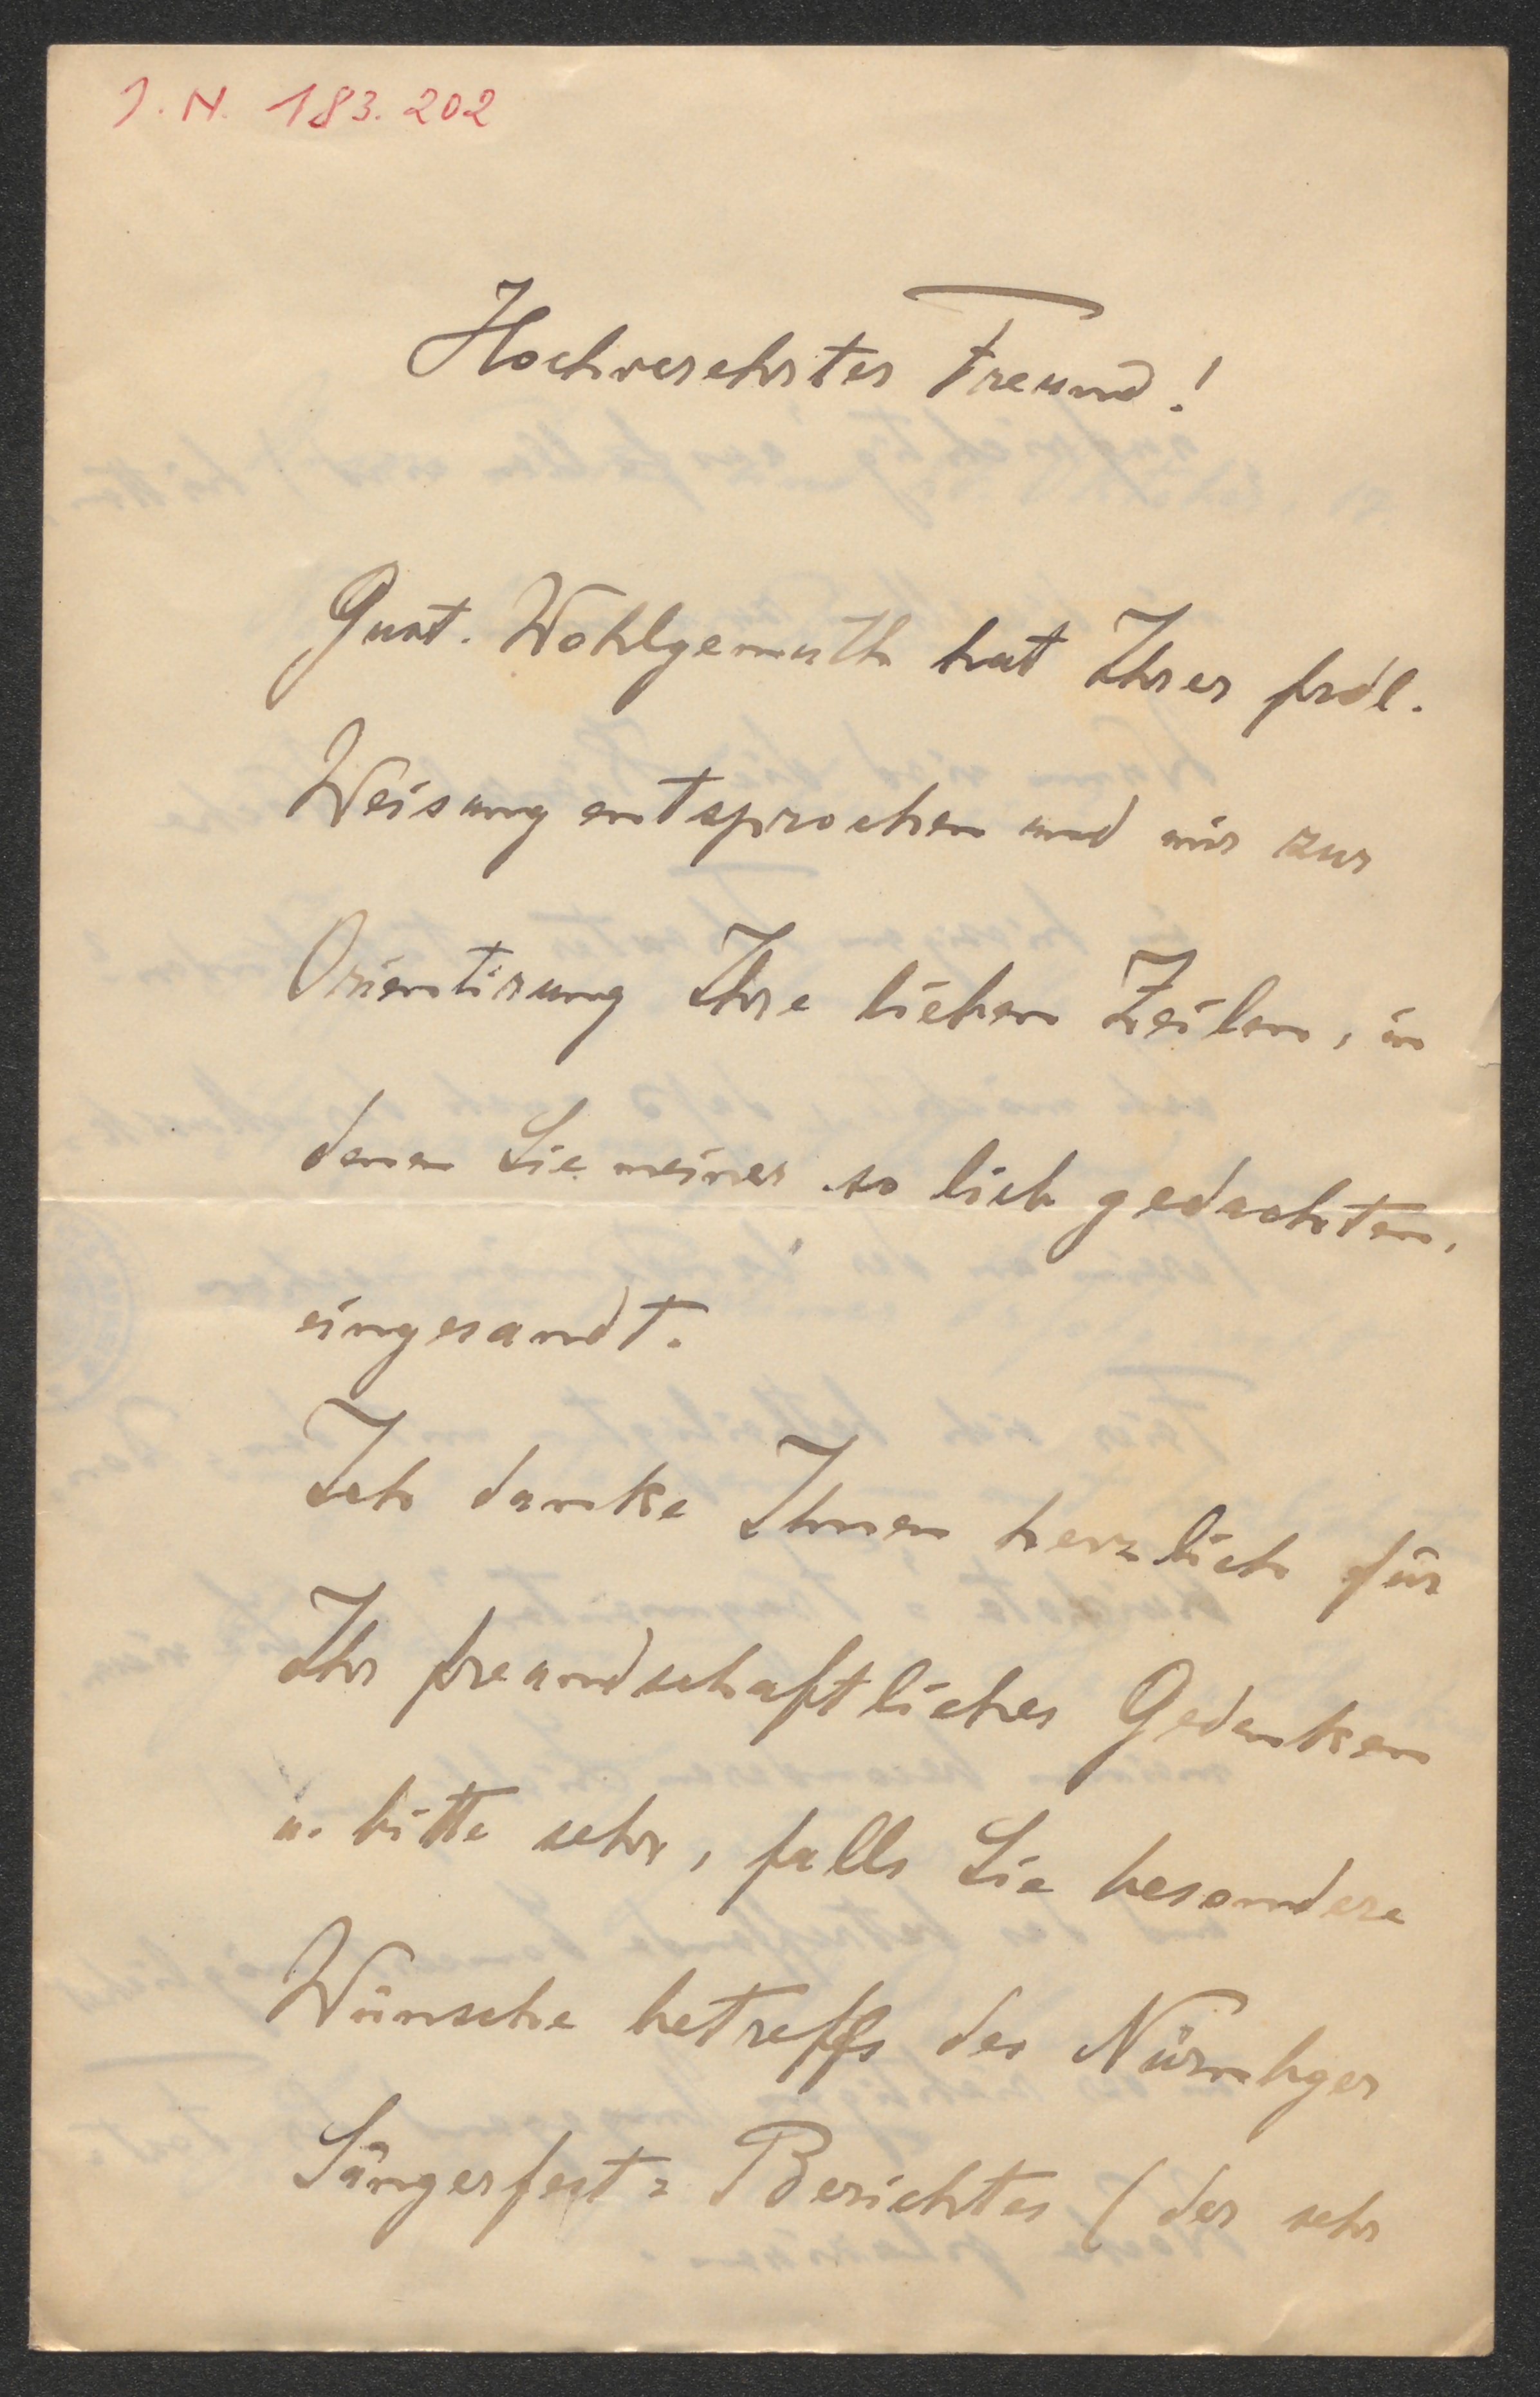 J. N. 183.202
Hochverehrter Freund!
Gust. Wohlgemuth hat Ihrer frdl.
Weisung entsprochen und mir zur
Orientirung Ihre lieben Zeilen, in
denen Sie meiner so lieb gedachten,
eingesandt.
Ich danke Ihnen herzlich für
Ihr freundschaftliches Gedenken
u. bitte sehr, falls Sie besondere
Wünsche betreffs des Nürnbger
Sängerfest= Berichtes (der sehr